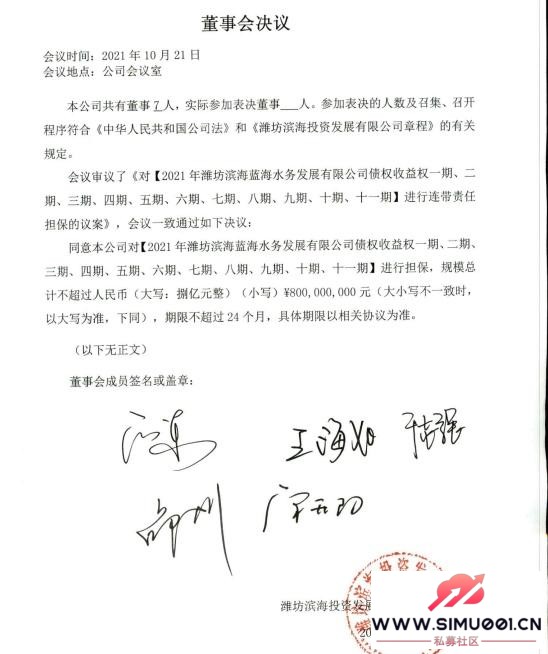 董事会决议
会议时间：2021 年 10 月 21 日
会议地点：公司会议室
本公司共有董事 7 人，实际参加表决董事___人。参加表决的人数及召集、召开
程序符合《中华人民共和国公司法》和《潍坊滨海投资发展有限公司章程》的有关
规定。
会议审议了《对【2021 年潍坊滨海蓝海水务发展有限公司债权收益权一期、二
期、三期、四期、五期、六期、七期、八期、九期、十期、十一期】进行连带责任
担保的议案》，会议一致通过如下决议：
同意本公司对【2021 年潍坊滨海蓝海水务发展有限公司债权收益权一期、二期、
三期、四期、五期、六期、七期、八期、九期、十期、十一期】进行担保，规模总
计不超过人民币（大写：捌亿元整）（小写）¥800,000,000 元（大小写不一致时，
以大写为准，下同），期限不超过 24 个月，具体期限以相关协议为准。
（以下无正文）
董事会成员签名或盖章：
潍坊滨海投资发展
20
WWW.SIMU001.CN
私募社区